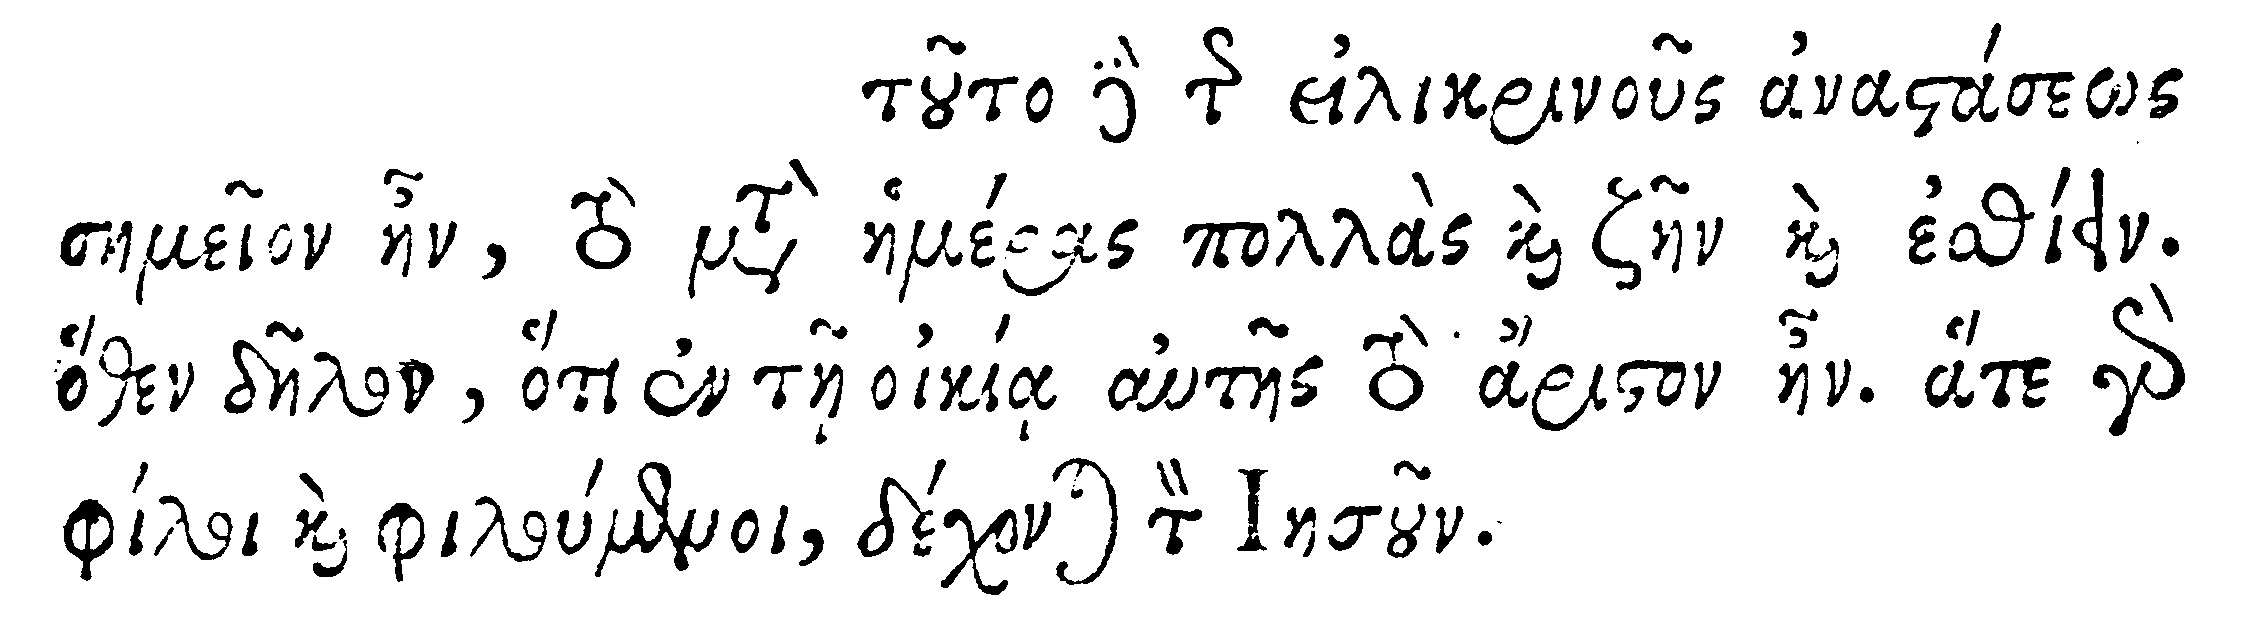 τοῦτο δὲ τῆς εἰλικρινοῦς ἀναστάσεως
σημεῖον ἦν, τὸ μετὰ ἡμέρας πολλὰς καὶ ζῆν καὶ ἐσθίειν.
ὅθεν δῆλον, ὅτι ἐν τῇ οἰκίᾳ αὐτῆς τὸ ἄριστον ἦν. ἅτε γὰρ
φίλοι καὶ φιλούμενοι, δέχονται τὸν Ιησοῦν.